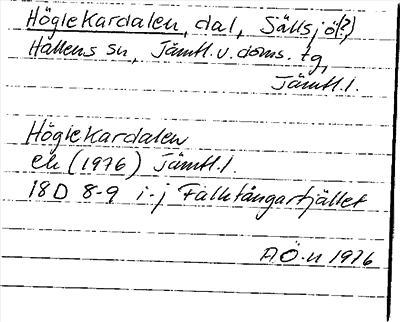 Höglekardalen, dal, Sällsjö(?),
Hallens sn, Jämtl. v. doms. tg,
Jämtl. l.
Höglekardalen
ek (1976) Jämtl. l.
18D 8-9 i-j Falkfångarfjället
AÖ-n 1976